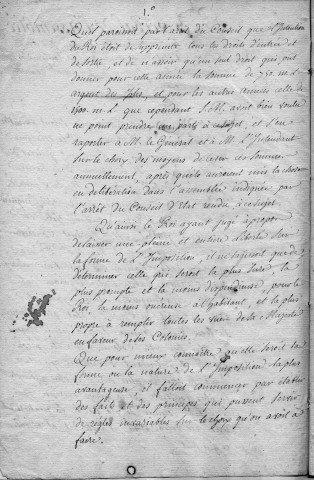 1.°
Qu'il paroissoit par l'arrêt du Conseil que l'Intention
du Roi étoit de supprimer tous les droits d'entrée et
de sortie, et de n'asseoir qu'un seul droit qui ont
donner pour cette année la somme de 750. m. L.
argent des Isles, et pour les autres années celle de
1500. m. L. que cependant S. M. avoit bien voulu
ne point prendre un parti à ce sujet, et s'en
raporter à M. le Général et à M. l'Intendant
sur le choix des moyens de lever ces sommes
annuellement, après qu'ils auroient mis la chose
en délibération dans l'assemblée indiquée par
l'arrêt du Conseil d'Etat rendu à ce sujet.
Qu'ainsi le Roi ayant jugé à propos
de laisser une pleine et entière liberté sur
la forme de l'Imposition, il ne s'agissoit que de
déterminer celle qui seroit la plus sure, la
plus prompte et la moins dispendieuse, pour le
Roi, la moins onéreuse à l'habitant, et la plus
propre à remplir toutes les vues de Sa Majesté
en faveur de ses Colonies.
Que pour mieux connoître quelle seroit la
forme ou la nature de l'Imposition la plus
avantageuse, il falloit commencer par établir
des faits et des principes qui pussent servir
de règles invariables sur le choix qu'on avoit à
faire.